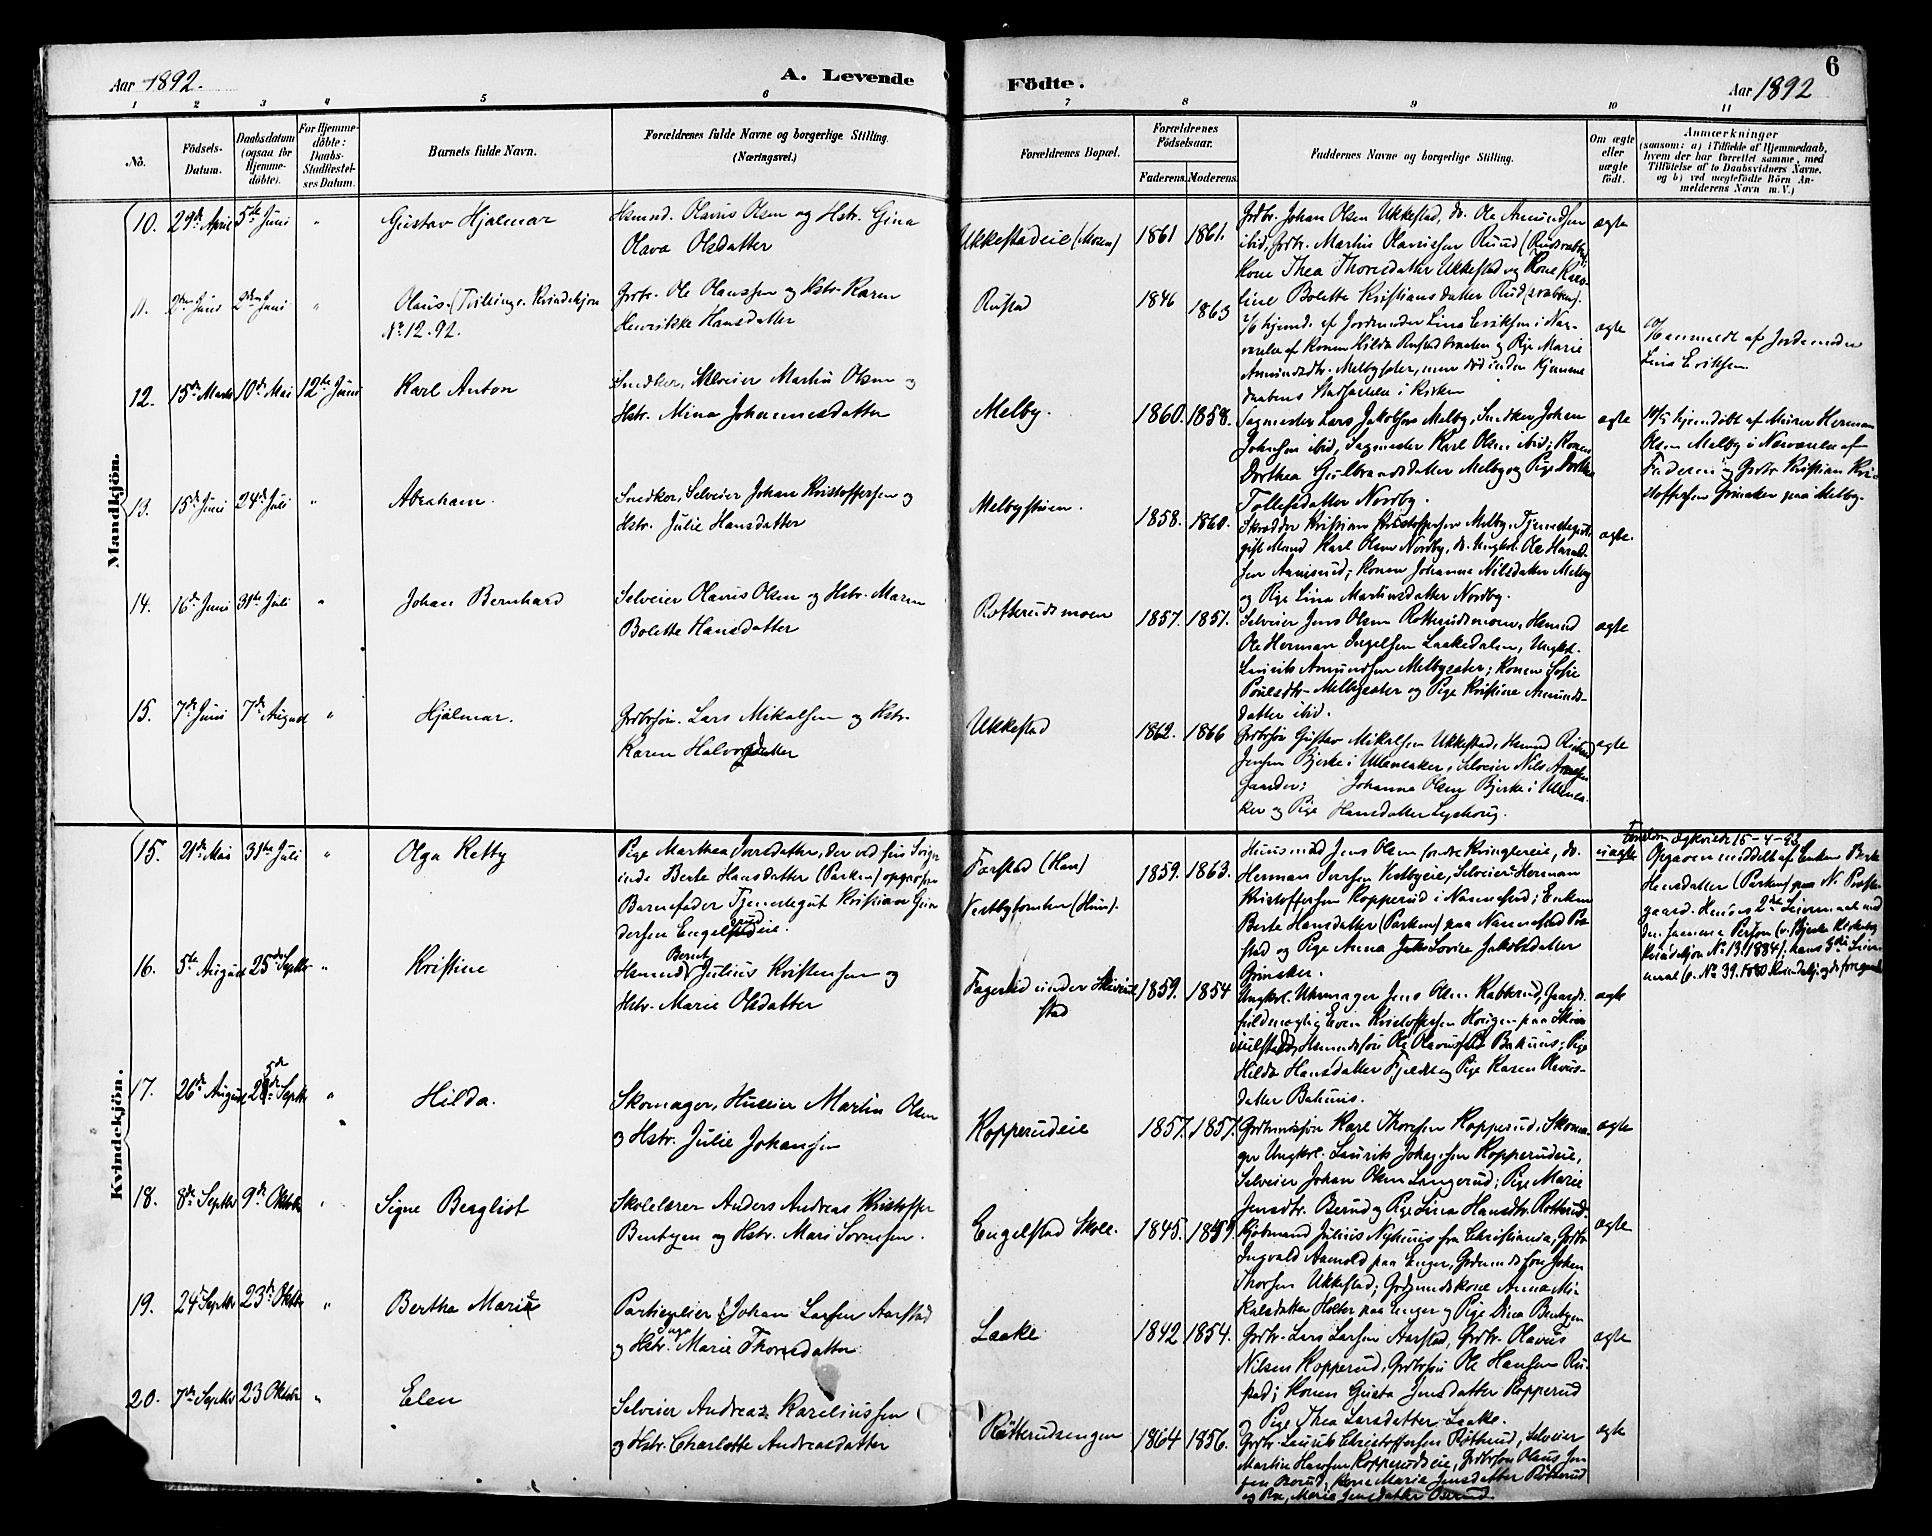 Aar 1892.
A. Levende
Födte.
6
Aar 1892
1 2 3 4 5 6 7 8 9 10 11
No.
Födsels-Datum.
Daabsdatum (ogsaa for Hjemme-döbte).
For Hjemme-döbte: Daabs-Stadfestel-ses Datum.
Barnets fulde Navn.
Forældrenes fulde Navne og borgerlige Stilling. (Næringsvei.)
Forældrenes Bopæl.
Forældrenes Födselsaar.
Faderens.
Moderens.
Faddernes Navne og borgerlige Stilling.
Om ægte eller uægte födt.
Anmærkninger
(saasom: a) i Tilfælde af Hjemmedaab, hvem der har forrettet samme, med Tilföielse af to Daabsvidners Navne, og b) ved uægtefödte Börn An-melderens Navn m. V.)
Mandkjön.
10. 29de April 5te Juni " Gustav Hjalmar
Hsmnd. Olavus Olsen og Hstr. Gina
Olava Olsdatter
Ukkestadeie (Moen) 1861 1861.
Grdbr. Johan Olsen Ukkestad, do. Ole Amundsen
ibid, Grdbr. Martin Olavissen Ruud
Kone Thea Thorsdatter Ukkestad og Kone Karo-
line Bolette Kristiansdatter Rud
ægte
11. 2den Juni 2den Juni " Olaus (Tvilling. Kvindekjön
No. 12. 92.
Grdbr. Ole Olaussen og Hstr. Karen
Henrikke Hansdatter
Rustad 1846 1863
2/6 hjemd. af Jordemoder Lina Eriksen i Nær-
værelse af Konen Hilda Rustadbraaten og Pige Marie
Amundsdtr. Melbysæter, men död inden Hjemme
daabens Stadfæstelse i Kirken
ægte
anmeldt af Jordemoder
Lina Eriksen
12. 15de Marts 10de Mai 12te Juni Karl Anton
Snedker, Selveier Martin Olsen og
Hstr. Mina Johannesdatter
Melby. 1860. 1858.
Sagmester Lars Jakobsen Melby, Snedker Johan
Johnsen ibid, Sagmester Karl Olsen ibid; Konen
Dorthea Gulbrandsdatter Melby og Pige Dorthea
Tollefsdatter Nordby.
ægte
10/5 hjemdöbt af Murer Herman
Olsen Melby i Nærværelse af
Faderen og Grdbr. Kristian Kri-
stoffersen Grinaker paa Melby.
13. 15de Juni 24de Juli " Abraham.
Snedker, Selveier Johan Kristoffersen og
Hstr. Julie Hansdatter
Melbystuen. 1858. 1860.
Skrædder Kristian Kristoffersen Melby, Tjenestegut
gift Mand Karl Olsen Nordby, do. Ungkrl. Ole Harald-
sen Amisrud; Konen Johanne Nilsdatter Melby
og Pige Lina Martinsdatter Nordby.
ægte.
14. 16de Juni 31te Juli " Johan Bernhard
Selveier Olavus Olsen og Hstr. Maren
Bolette Hansdatter
Rotterudsmoen 1857. 1851.
Selveier Jens Olsen Rotterudsmoen, Hsmnd
Ole Herman Ingelsen Laakedalen, Ungkrl.
Laurits Amundsen Melbysæter; Konen Sofie
Poulsdtr. Melbysæter og Pige Kristine Amunds-
datter ibid.
ægte
15. 7de Juni 7de August " Hjalmar.
Grdbrsön. Lars Mikalsen og Hstr.
Karen Halvorsdatter
Ukkestad 1862. 1866
Grdbrsön Gustav Mikalsen Ukkestad, Hsmnd
Jensen Bjerke i Ullensaker, Selveier Nils
Johanna Olsen Bjerke i Ullensa-
ker og Pige Hansdatter
ægte
Kvindekjön.
15. 21de Mai 31te Juli " Olga Ketty
Pige Marthea Iversdatter, der ved sin Sviger
inde Berte Hansdatter (Parken) opgav som
Barnefader Tjenestegut Kristian Gun
dersen Engelsrudeie.
Faastad (Han)
Vestbytomten (Hun). 1859. 1863.
Huusmnd Jens Olsen Kvinglereie, do.
Herman Iversen Vestbyeie, Selveier Herman
Kristoffersen Kopperud i Nannestad; Enken
Berte Hansdatter (Parken) paa Nannestad Præ-
stad og Pige Anna Lovise Jakobsdatter
Grinaker.
uægte
15-4-93
Opgaven meddelt af Enken Berte
Hansdatter (Parken) paa N. Præste-
gaard. Hendes 2det Leiermaal med
den samme Person
Kvindekjön No. 13/1884), hans 3die Leier-
maal
16. 5te August 25de Septbr " Kristine
Hsmnd Bernt Julius Kristensen og
Hstr. Marie Olsdatter
Fagerlid under
stad 1859. 1854
Ungkrl. Uhrmager Jens Olsen Rabberud, Gaards-
fuldmægtig Even Kristoffersen Hougen paa
Hsmndssön Ole Olavussen Bakhuus; Pige
Hilda Hansdatter Fjeldet og Pige Karen Olavus-
datter Bakuus.
ægte
17. 26de August 25de Septbr " Hilda.
Skomager, Huseier Martin Olsen
og Hstr. Julie Johansen
Kopperudeie 1857. 1857.
Grdbrmandssön Karl Thorsen Kopperud, Skoma-
ger Ungkrl. Laurits Johansen Kopperudeie,
Selveier Johan Olsen Langerud; Pige Marie
Jensdtr. Berud og Pige Lina Hansdtr. Rotterud.
ægte
18. 8de Septbr 9de Oktobr " Signe Bergliot
Skolelærer Anders Andreas Kristoffer
Bentzen og Hstr. Mari Sörensen.
Engelstad Skole. 1845. 1849.
Kjöbmand Julius Nyhuus fra Christiania, Grdbr.
Ingvald Aamold paa Enger, Grdmndssön Johan
Thorsen Ukkestad; Grdmndskone Anna Mi-
kalsdatter Holter paa Enger og Pige Dina Bentzen
ægte
19. 24de Septbr 23de Oktobr " Bertha Marie
Particulier Johan Larsen Aarstad
og Hstr. Marie Thorsdatter
Laake 1842 1854.
Grdbr. Lars Larsen Aarstad, Grdbr. Olavus
Nilsen Kopperud, Grdbrsön Ole Hansen Ru-
stad; Konen Gusta Jensdatter Kopperud
og Pige Thea Larsdatter Laake.
ægte
20. 7de Septbr 23 Oktobr " Elen
Selveier Andreas Kareliussen
og Hstr. Charlotte Andreasdatter
Rötterudsengen 1864 1856.
Grdbr. Laurits Christoffersen Rötterud, Selveier
Martin Hansen Kopperudseie, Grdbrsön Olaus Jen-
sen Berud; Kone Maria Jensdatter Rötterud
og Pige Marie Jensdatter Berud
ægte